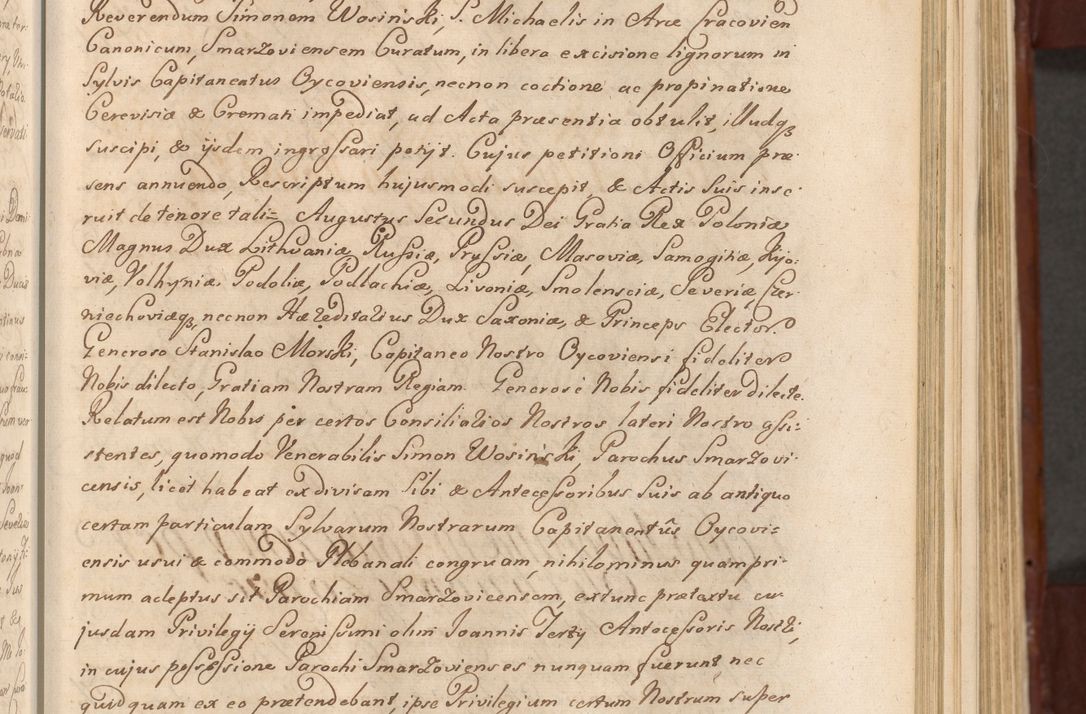 Reverendum Simonem Wosiński, S. Michaelis in Arce Cracovien
Canonicum, Smarzoviensem Curatum, in libera excisione lignorum in
Sylvis Capitaneatus Oycoviensis, necnon coctione ac propinatione
Cerevisiæ & Cremati impediat, ad Acta præsentia obtulit, illudq
suscipi, & ijsdem ingrossari petijt. Cujus petitioni Officium præ-
sens annuendo, Rescriptum hujusmodi suscepit, & Actis Suis inse-
ruit de tenore tali= Augustus Secundus Dei Gratia Rex Poloniæ
Magnus Dux Lithvaniæ, Russiæ, Prussiæ, Masoviæ, Samogitiæ, Kijo-
viæ, Volhyniæ, Podoliæ, Podlachiæ, Livoniæ, Smolensciæ, Severiæ, Czer-
niechoviæq, necnon Hæreditarius Dux Saxoniæ, & Princeps Elector.
Generoso Stanislao Morski, Capitaneo Nostro Oycoviensi fideliter
Nobis dilecto, Gratiam Nostram Regiam. Generosè Nobis fideliter Dilecte.
Relatum est Nobis per certos Consiliarios Nostros lateri Nostro assi-
stentes, quomodo Venerabilis Simon Wosiński, Parochus Smarzovi-
censis, licet habeat ex divisam Sibi & Antecessoribus Suis ab antiquo
certam particulam Sylvarum Nostrarum Capitaneatûs Oycovi=
ensis usui & commodo Plebanali congruam, nihilominus quampri-
mum adeptus sit Parochiam Smarzovicensem, extunc prætextu cu-
jusdam Privilegij Serenissimi olim Joannis Tertij Antecessoris Nostri,
in cujus possessione Parochi Smarzovienses nunquam fuerunt nec
quidquam ex eo prætendebant, ipse Privilegium certum Nostrum super